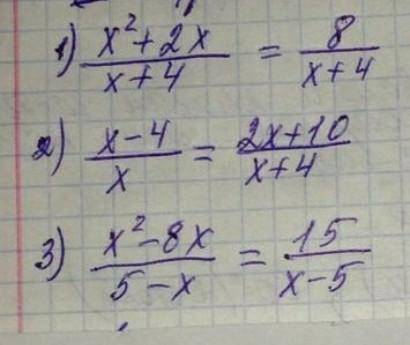 1) (x²+2x)/(x+4) = 8/(x+4)
2) (x-4)/x = (2x+10)/(x+4)
3) (x²-8x)/(5-x) = 15/(x-5)